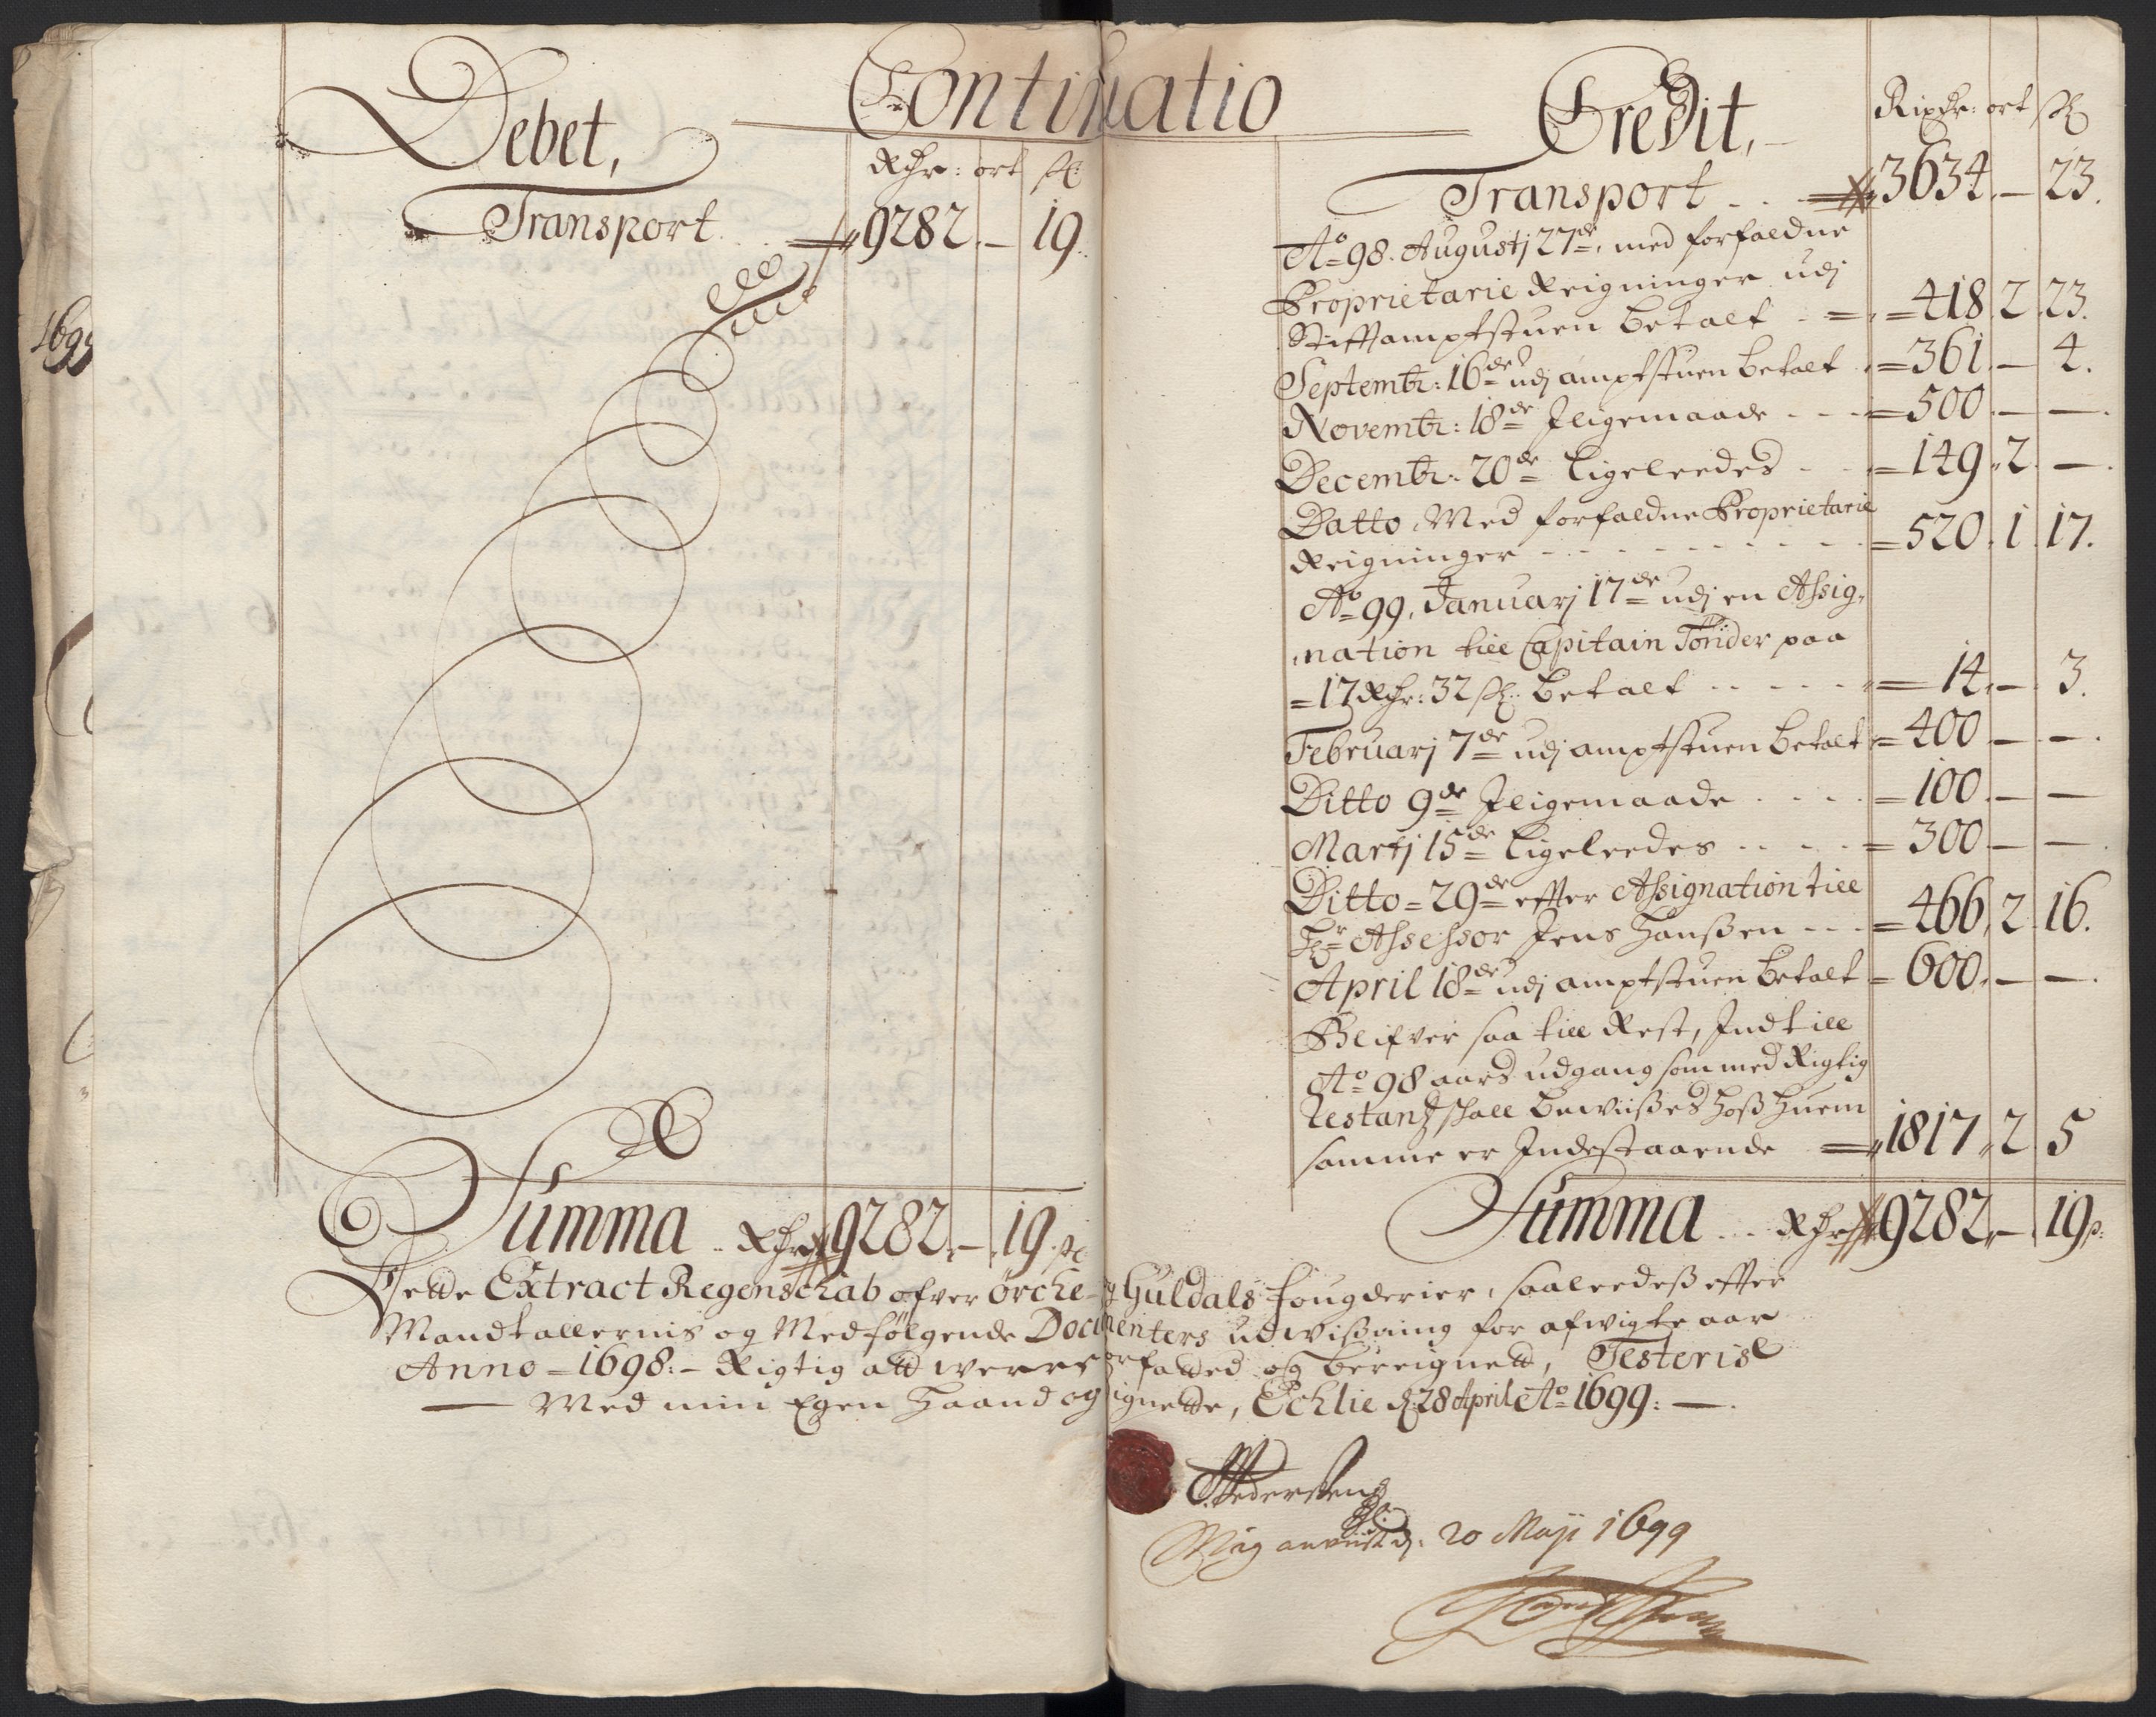 Continuatio
Debet,
Rdr: ort ß
Transport 9282 — 19
Summa Rdr 9282 — 19 ß
Credit,
Rixdr: ort ß
Transport 3634 — 23.
Ao 98. Augustj 27de, med forfaldne
Proprietarie Reigninger udj
Stifftamptstuen betalt 418 2 23.
Septembr: 16de udj amptstuen betalt 361 — 4.
Novembr: 18de Jligemaade 500 — —
Decembr: 20de ligeleedes 149 2 —
Datto, Med forfaldne Proprietarie
Reigninger 520 1 17.
Ao 99, Januarj 17de udj en Assig-
nation till Capitain Tønder paa
17 Rdr: 32 ß: betalt 14 — 3.
Februarj 7de udj amptstuen betalt 400 — —
Ditto 9de Jligemaade 100 — —
Martj 15de ligeleedes 300 — —
Ditto 29de effter Assignation till
Hr Assessor Jens Hanßen 466 2 16.
April 18de udj amptstuen betalt 600 — —
Blifver saa till Rest, Indtill
Ao 98 aars udgang som med Rigtig
Restantz skall bewiißes hoß huem
samme er Indestaaende 1817 2 5
Summa Rdr 9282 — 19 ß
Dette Extract Regenschab ofver Ørche- Guldals fougderier, saaleedeß effter
Mandtallernis og Medfølgende Documenters udwißning for afwigte aar
Anno 1698: Rigtig att were forfatted og bereignett, Testeris
Med min Egen Haand og Signette, Echlie d: 28 April Ao 1699:
Pedersen
20 Maji 1699
1698